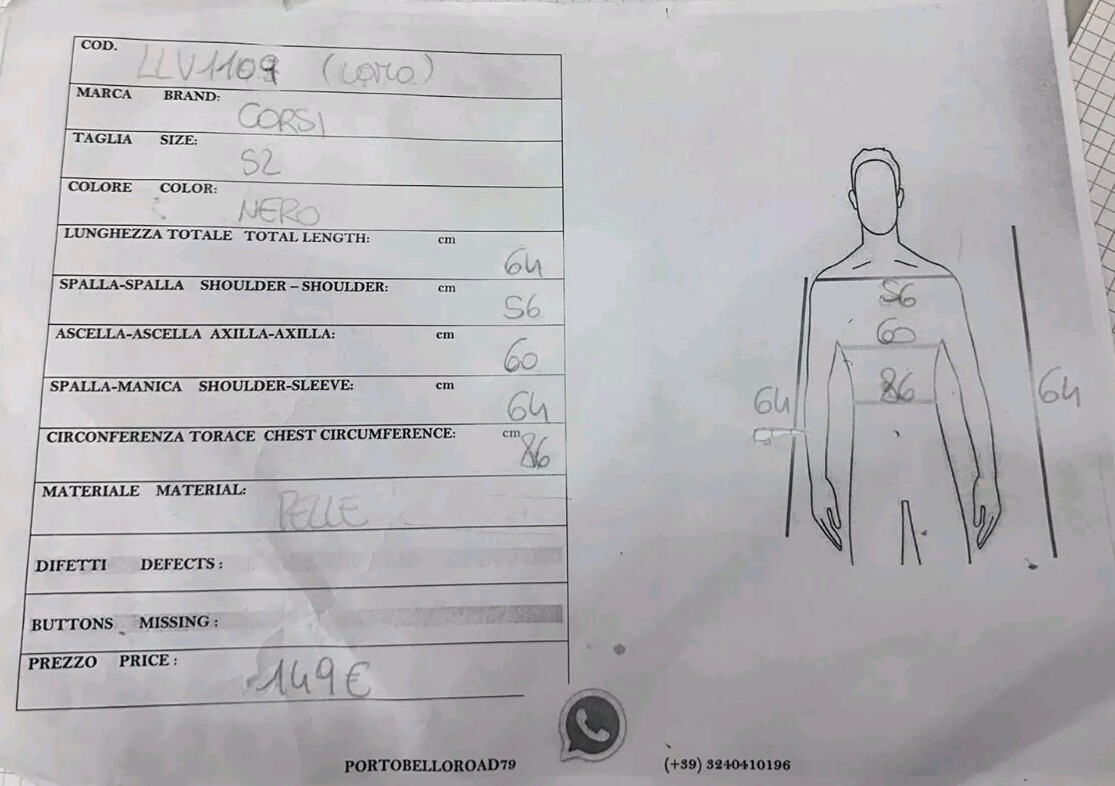 COD. LLV1109 (loro)
MARCA BRAND: CORSI
TAGLIA SIZE: 52
COLORE COLOR: NERO
LUNGHEZZA TOTALE TOTAL LENGTH: cm 64
SPALLA-SPALLA SHOULDER – SHOULDER: cm 56
ASCELLA-ASCELLA AXILLA-AXILLA: cm 60
SPALLA-MANICA SHOULDER-SLEEVE: cm 64
CIRCONFERENZA TORACE CHEST CIRCUMFERENCE: cm 86
MATERIALE MATERIAL: PELLE
DIFETTI DEFECTS :
BUTTONS MISSING :
PREZZO PRICE : 149€
56
60
86
64
64
PORTOBELLOROAD79 (+39) 3240410196